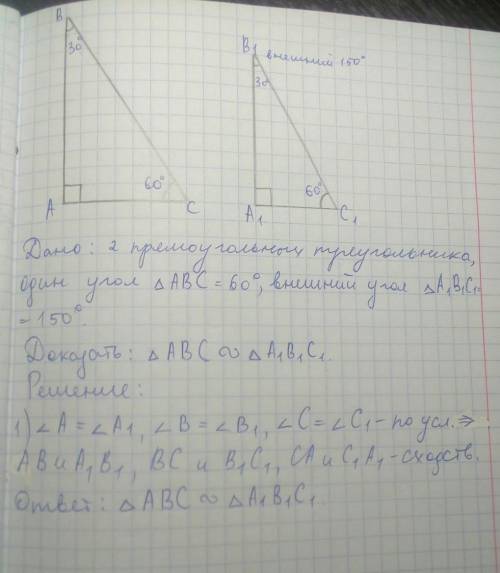 B
30°
B₁ внешний 150°
30
60°
60°
A
C
A₁
C₁
Дано: 2 прямоугольных треугольника,
один угол △ABC = 60°, внешний угол △A₁B₁C₁=
= 150°.
Доказать: △ABC ∾ △A₁B₁C₁.
Решение:
1) ∠A = ∠A₁, ∠B = ∠B₁, ∠C = ∠C₁ - по усл. ⇒
AB и A₁B₁, BC и B₁C₁, CA и C₁A₁ - сходств.
Ответ: △ABC ∾ △A₁B₁C₁.